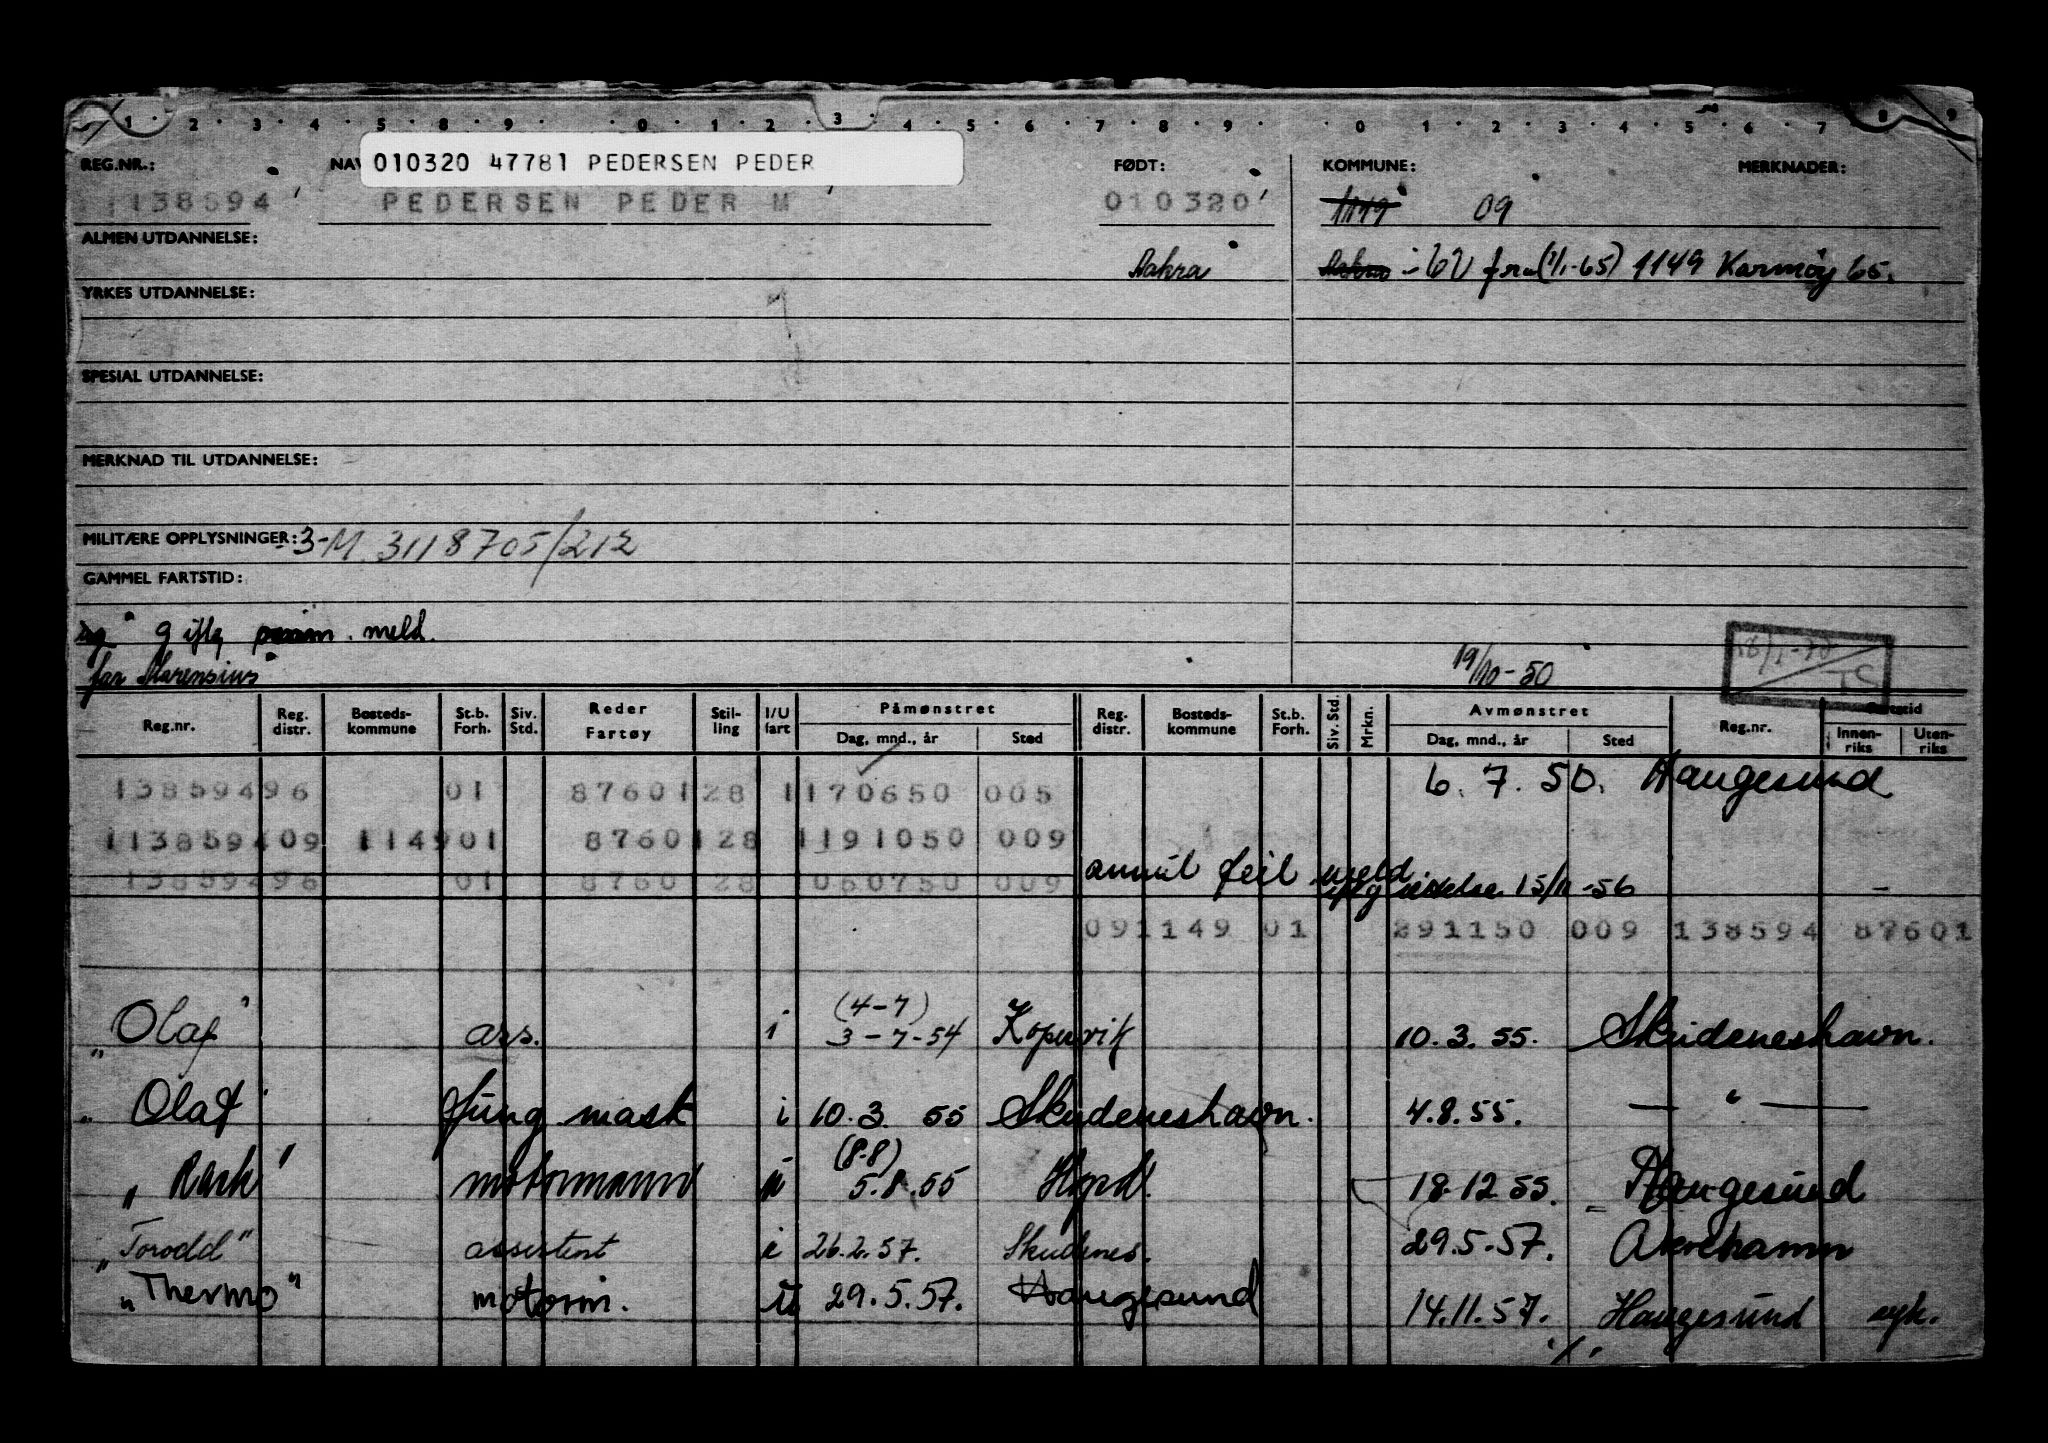 1 2 3 4 5 6 7 8 9 0 1 2 3 4 5 6 7 8 9 0 1 2 3 4 5 6 7 8 9
010320 47781 PEDERSEN PEDER
REG.NR.: NAV FØDT: KOMMUNE: MERKNADER:
138594 PEDERSEN PEDER M 010320 1149 09
ALMEN UTDANNELSE:
Aakra Aakra - 62 fra (1/1-65) 1149 Karmøy 65.
YRKES UTDANNELSE:
SPESIAL UTDANNELSE:
MERKNAD TIL UTDANNELSE:
MILITÆRE OPPLYSNINGER: 3-M. 3118705/212
GAMMEL FARTSTID:
g iflg mønm. meld.
far Marensius 19/10-50
Reg.nr. Reg. distr. Bosteds-kommune St.b. Forh. Siv. Std. Reder Fartøy Stil-ling I/U fart Påmønstret Dag, mnd., år Sted Reg. distr. Bosteds-kommune St.b. Forh. Siv. Std. Mrkn. Avmønstret Dag, mnd., år Sted Reg.nr. Fartstid Innen-riks Uten-riks
13859496 01 8760128 1170650 005 6. 7. 50. Haugesund
113859409 114901 8760128 1191050 009
13859496 01 8760 128 060750 009 annul feil meld
15/11-56
091149 01 291150 009 138594 87601
(4-7)
"Olaf" ass. i 3-7-54 Kopervik 10.3.55. Skudeneshavn.
"Olaf" Fung mask i 10.3 55 Skudeneshavn. 4.8.55. — " —
(8-8)
"Rask" motormann u 5.8.55 Hgsd. 18.12.55. Haugesund
"Torodd" assistent i 26.2.57. Skudenes. 29.5.57. Åkrehamn
"Thermo" motorm. u 29.5.57. Haugesund 14.11.57. Haugesund syk.